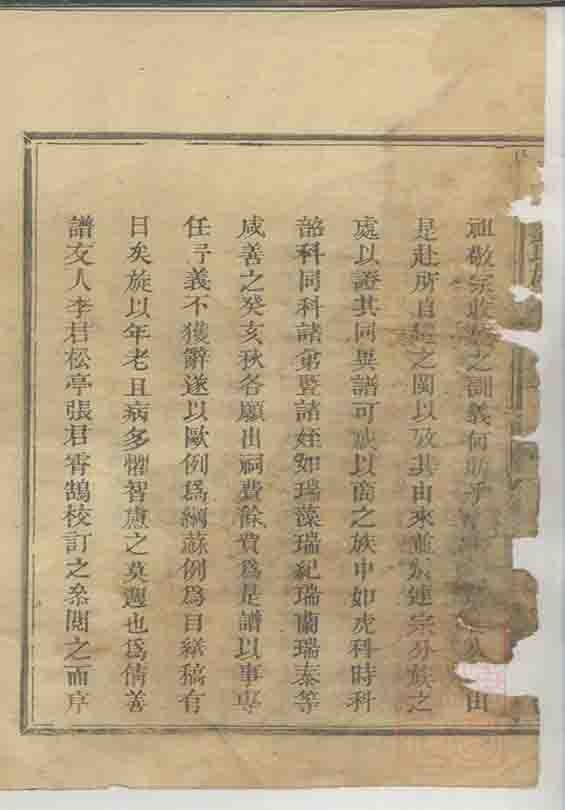 祖敬宗收族之訓義何
是赴所自經之図以攷其由來並宗連宗分族之
處以證其同異諸可族以商之族中如虎科時科
韶科同科諸弟暨諸姪如瑞藻瑞紀瑞蘭瑞泰等
咸善之癸亥秋各願出祠費餘貲為是譜以事專
任予義不獲辭遂以歐例為綱蘇例為目繕稿有
日矣旋以年老且病多懼智慮之莫遑也為倩善
譜友人李君松亭張君霄鵠校訂之条閲之而序